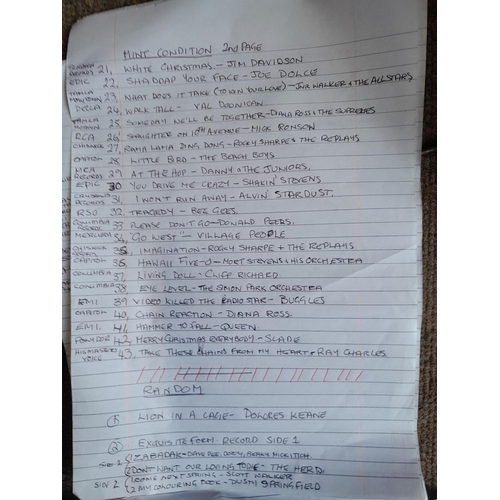 MINT CONDITION 2nd PAGE
RECORDS 21, WHITE CHRISTMAS - JIM DAVIDSON
EPIC 22, SHADDAP YOUR FACE - JOE DOLCE
TAMLA MOTOWN 23, WHAT DOES IT TAKE (TO WIN YOUR LOVE) - JNR WALKER & THE ALLSTARS
DECCA 24, WALK TALL - VAL DOONICAN
TAMLA MOTOWN 25, SOMEDAY WE'LL BE TOGETHER - DIANA ROSS & THE SUPREMES
RCA 26, SLAUGHTER ON 10TH AVENUE - MICK RONSON
CHISWICK 27, RAMA LAMA DING DONG - ROCKY SHARPE & THE REPLAYS
CAPITOL 28, LITTLE BIRD - THE BEACH BOYS
MCA RECORDS 29 AT THE HOP - DANNY & THE JUNIORS.
EPIC 30 YOU DRIVE ME CRAZY - SHAKIN' STEVENS
CHRYSALIS RECORDS 31, I WON'T RUN AWAY - ALVIN STARDUST.
RSO 32, TRAGEDY - BEE GEES.
COLUMBIA 33, PLEASE DON'T GO - DONALD PEERS.
MERCURY 34, "GO WEST" - VILLAGE PEOPLE
CHISWICK RECORDS 35, IMAGINATION - ROCKY SHARPE & THE REPLAYS
CAPITOL 36, HAWAII FIVE-O - MORT STEVENS & HIS ORCHESTRA
COLUMBIA 37, LIVING DOLL - CLIFF RICHARD
COLUMBIA 38, EYE LEVEL - THE SIMON PARK ORCHESTRA
EMI 39 VIDEO KILLED THE RADIO STAR - BUGGLES
CAPITOL 40, CHAIN REACTION - DIANA ROSS.
EMI. 41, HAMMER TO FALL - QUEEN
POLYDOR 42, MERRY CHRISTMAS EVERYBODY - SLADE
HIS MASTERS VOICE 43, TAKE THESE CHAINS FROM MY HEART - RAY CHARLES
RANDOM
① LION IN A CAGE - DOLORES KEANE
② EXQUISITE FORM RECORD SIDE 1
SIDE 1 ZABADAK - DAVE DEE, DOZY, BEAKY, MICK & TICH
2 DON'T WANT OUR LOVING TO DIE - THE HERD
SIDE 2 1 COME NEXT SPRING - SCOTT WALKER
2 MY COLOURING BOOK - DUSTY SPRINGFIELD